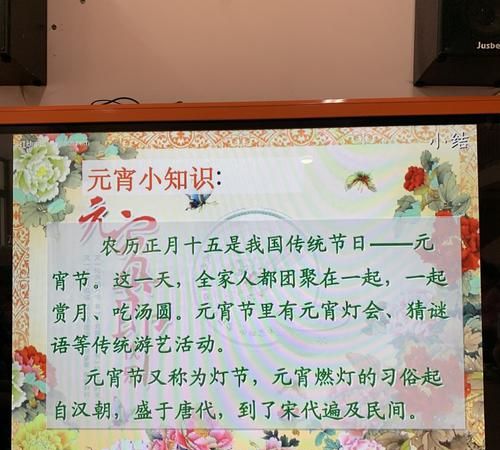 Jusbe
小结
元宵小知识：
农历正月十五是我国传统节日——元
宵节。这一天，全家人都团聚在一起，一起
赏月、吃汤圆。元宵节里有元宵灯会、猜谜
语等传统游艺活动。
元宵节又称为灯节，元宵燃灯的习俗起
自汉朝，盛于唐代，到了宋代遍及民间。